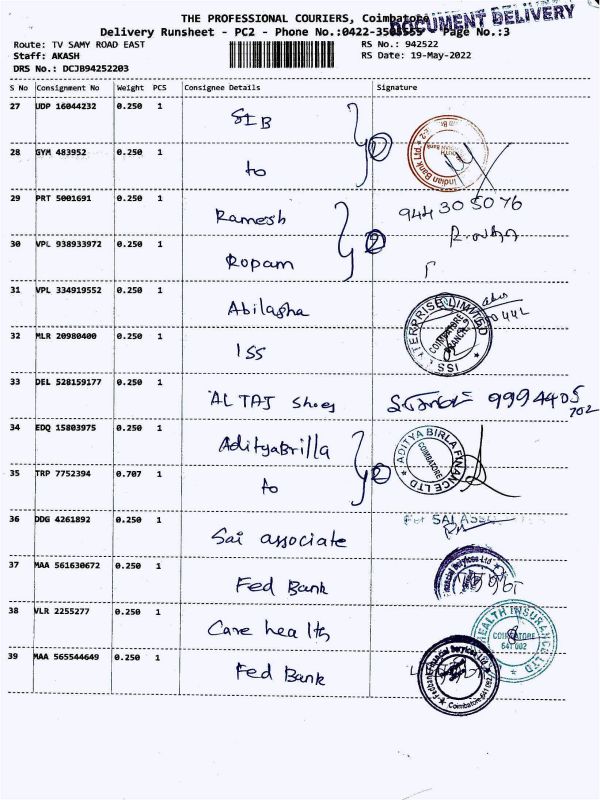 THE PROFESSIONAL COURIERS, Coimbatore
DOCUMENT DELIVERY
Delivery Runsheet - PC2 - Phone No.:0422- Page No.:3
Route: TV SAMY ROAD EAST
RS No.: 942522
Staff: AKASH
RS Date: 19-May-2022
DRS No.: DCJB94252203
S No Consignment No Weight PCS Consignee Details Signature
27 UDP 16044232 0.250 1 SIB
28 GYM 483952 0.250 1 to
Indian Bank Ltd
29 PRT 5001691 0.250 1 Ramesh
944 305076
30 VPL 938933972 0.250 1 Ropam
31 VPL 334919552 0.250 1 Abilasha
32 MLR 20980400 0.250 1 ISS
COIMBATORE BRANCH
33 DEL 528159177 0.250 1 AL TAJ Shoes 9994405
702
34 EDQ 15803975 0.250 1 AdityaBrilla
ADITYA BIRLA FINANCE LTD
COIMBATORE
35 TRP 7752394 0.707 1 to
36 DDG 4261892 0.250 1 Sai associate
For SAI ASSO
37 MAA 561630672 0.250 1 Fed Bank
Services Ltd
38 VLR 2255277 0.250 1 Care health
HEALTH INSURANCE LTD
COIMBATORE
641 002
39 MAA 565544649 0.250 1 Fed Bank
Fedbank Financial Services Ltd.
Coimbatore-641 002